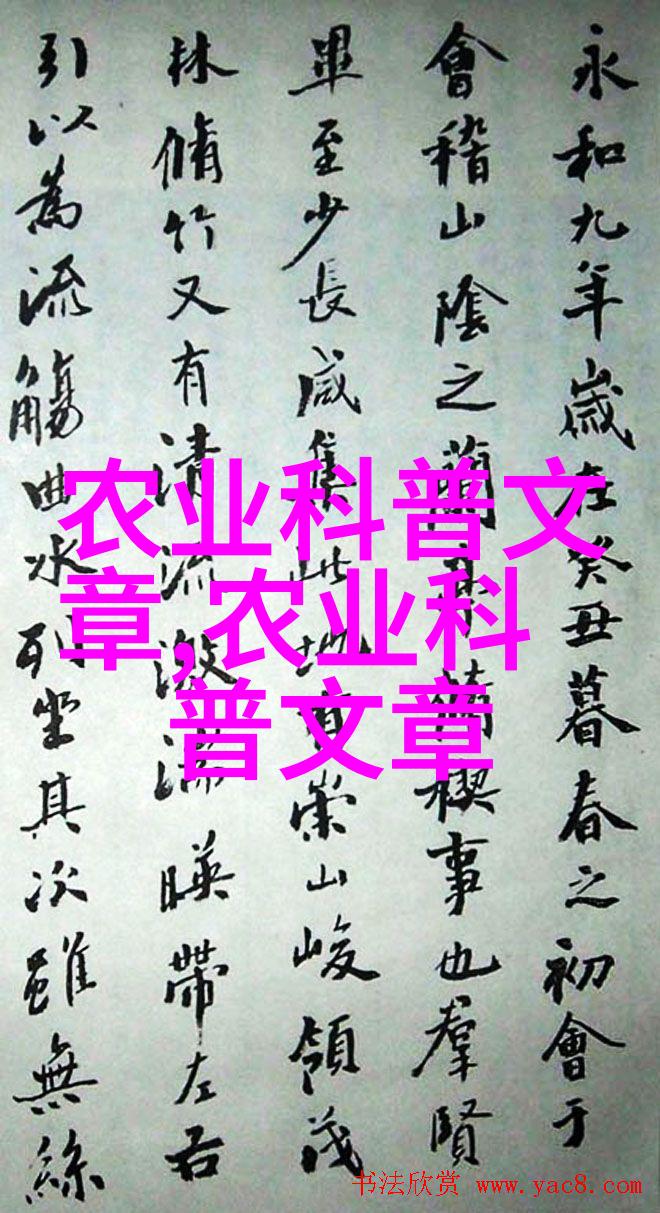 永和九年歲在癸丑暮春之初會于
會稽山陰之蘭亭脩禊事也羣賢
畢至少長咸集此地有崇山峻領茂
林脩竹又有清流激湍暎帶左右
引以為流觴曲水列坐其次雖無絲
农业科普文
章,农业科
普文章
书法欣赏 www.yac8.com